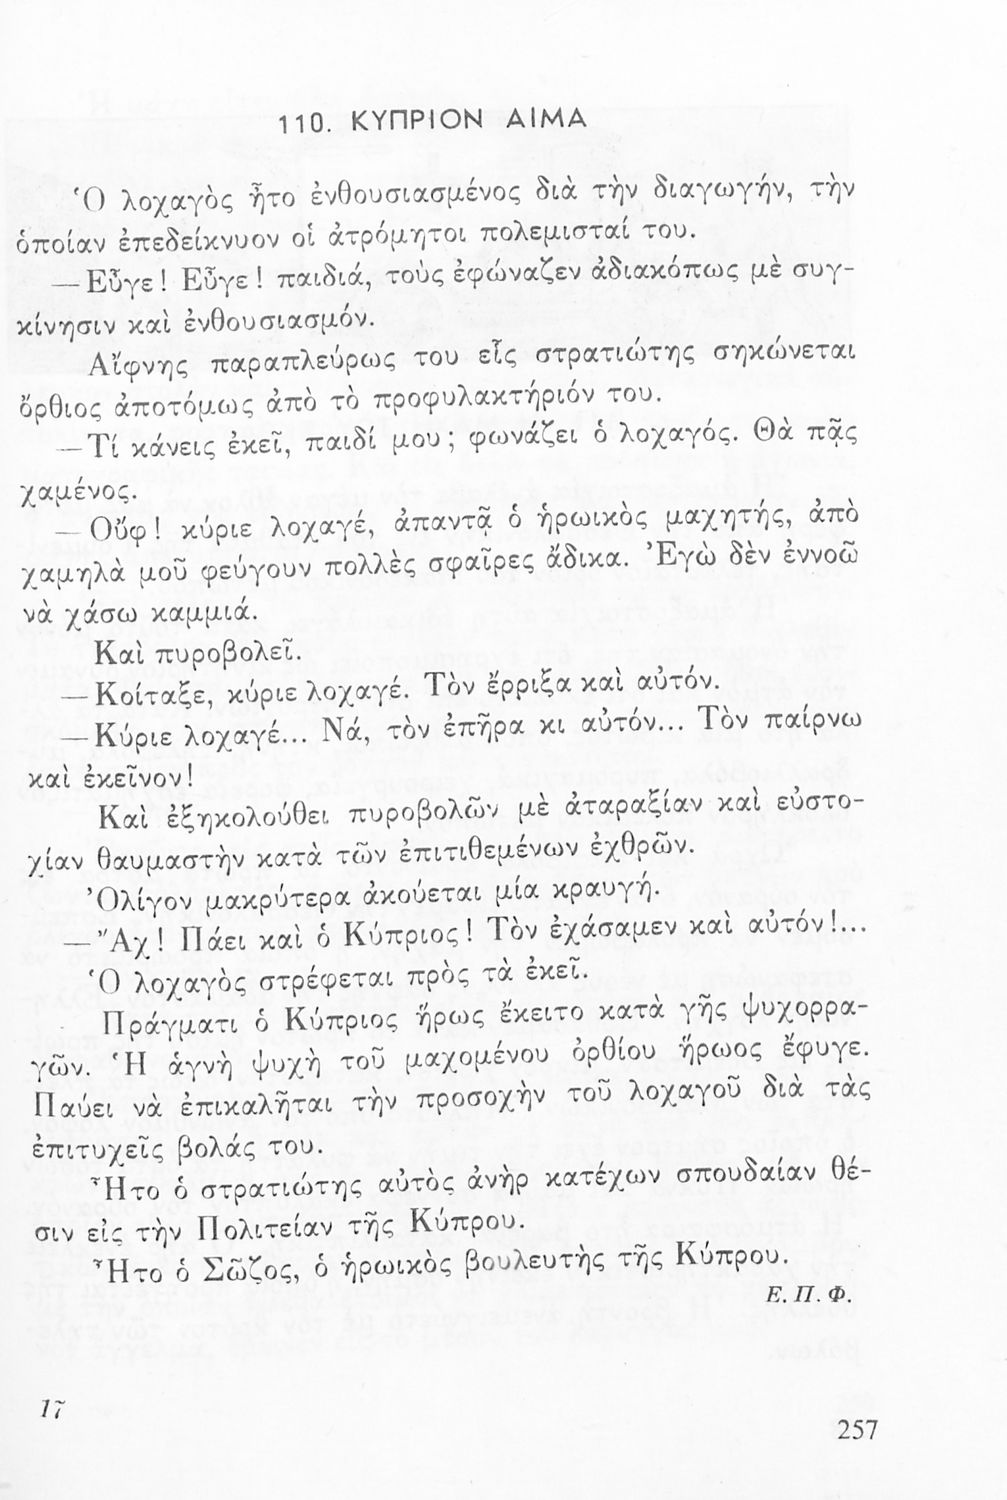 110. ΚΥΠΡΙΟΝ ΑΙΜΑ
Ὁ λοχαγὸς ἦτο ἐνθουσιασμένος διὰ τὴν διαγωγήν, τὴν
ὁποίαν ἐπεδείκνυον οἱ ἀτρόμητοι πολεμισταί του.
— Εὖγε! Εὖγε! παιδιά, τοὺς ἐφώναζεν ἀδιακόπως μὲ συγ-
κίνησιν καὶ ἐνθουσιασμόν.
Αἴφνης παραπλεύρως του εἷς στρατιώτης σηκώνεται
ὄρθιος ἀποτόμως ἀπὸ τὸ προφυλακτήριόν του.
— Τί κάνεις ἐκεῖ, παιδί μου; φωνάζει ὁ λοχαγός. Θὰ πᾷς
χαμένος.
— Οὔφ! κύριε λοχαγέ, ἀπαντᾷ ὁ ἡρωικὸς μαχητής, ἀπὸ
χαμηλὰ μοῦ φεύγουν πολλὲς σφαῖρες ἄδικα. Ἐγὼ δὲν ἐννοῶ
νὰ χάσω καμμιά.
Καὶ πυροβολεῖ.
— Κοίταξε, κύριε λοχαγέ. Τὸν ἔρριξα καὶ αὐτόν.
— Κύριε λοχαγέ... Νά, τὸν ἐπῆρα κι αὐτόν... Τὸν παίρνω
καὶ ἐκεῖνον!
Καὶ ἐξηκολούθει πυροβολῶν μὲ ἀταραξίαν καὶ εὐστο-
χίαν θαυμαστὴν κατὰ τῶν ἐπιτιθεμένων ἐχθρῶν.
Ὀλίγον μακρύτερα ἀκούεται μία κραυγή.
— Ἄχ! Πάει καὶ ὁ Κύπριος! Τὸν ἐχάσαμεν καὶ αὐτόν!...
Ὁ λοχαγὸς στρέφεται πρὸς τὰ ἐκεῖ.
Πράγματι ὁ Κύπριος ἥρως ἔκειτο κατὰ γῆς ψυχορρα-
γῶν. Ἡ ἁγνὴ ψυχὴ τοῦ μαχομένου ὀρθίου ἥρωος ἔφυγε.
Παύει νὰ ἐπικαλῆται τὴν προσοχὴν τοῦ λοχαγοῦ διὰ τὰς
ἐπιτυχεῖς βολάς του.
Ἦτο ὁ στρατιώτης αὐτὸς ἀνὴρ κατέχων σπουδαίαν θέ-
σιν εἰς τὴν Πολιτείαν τῆς Κύπρου.
Ἦτο ὁ Σῶζος, ὁ ἡρωικὸς βουλευτὴς τῆς Κύπρου.
Ε. Π. Φ.
17
257